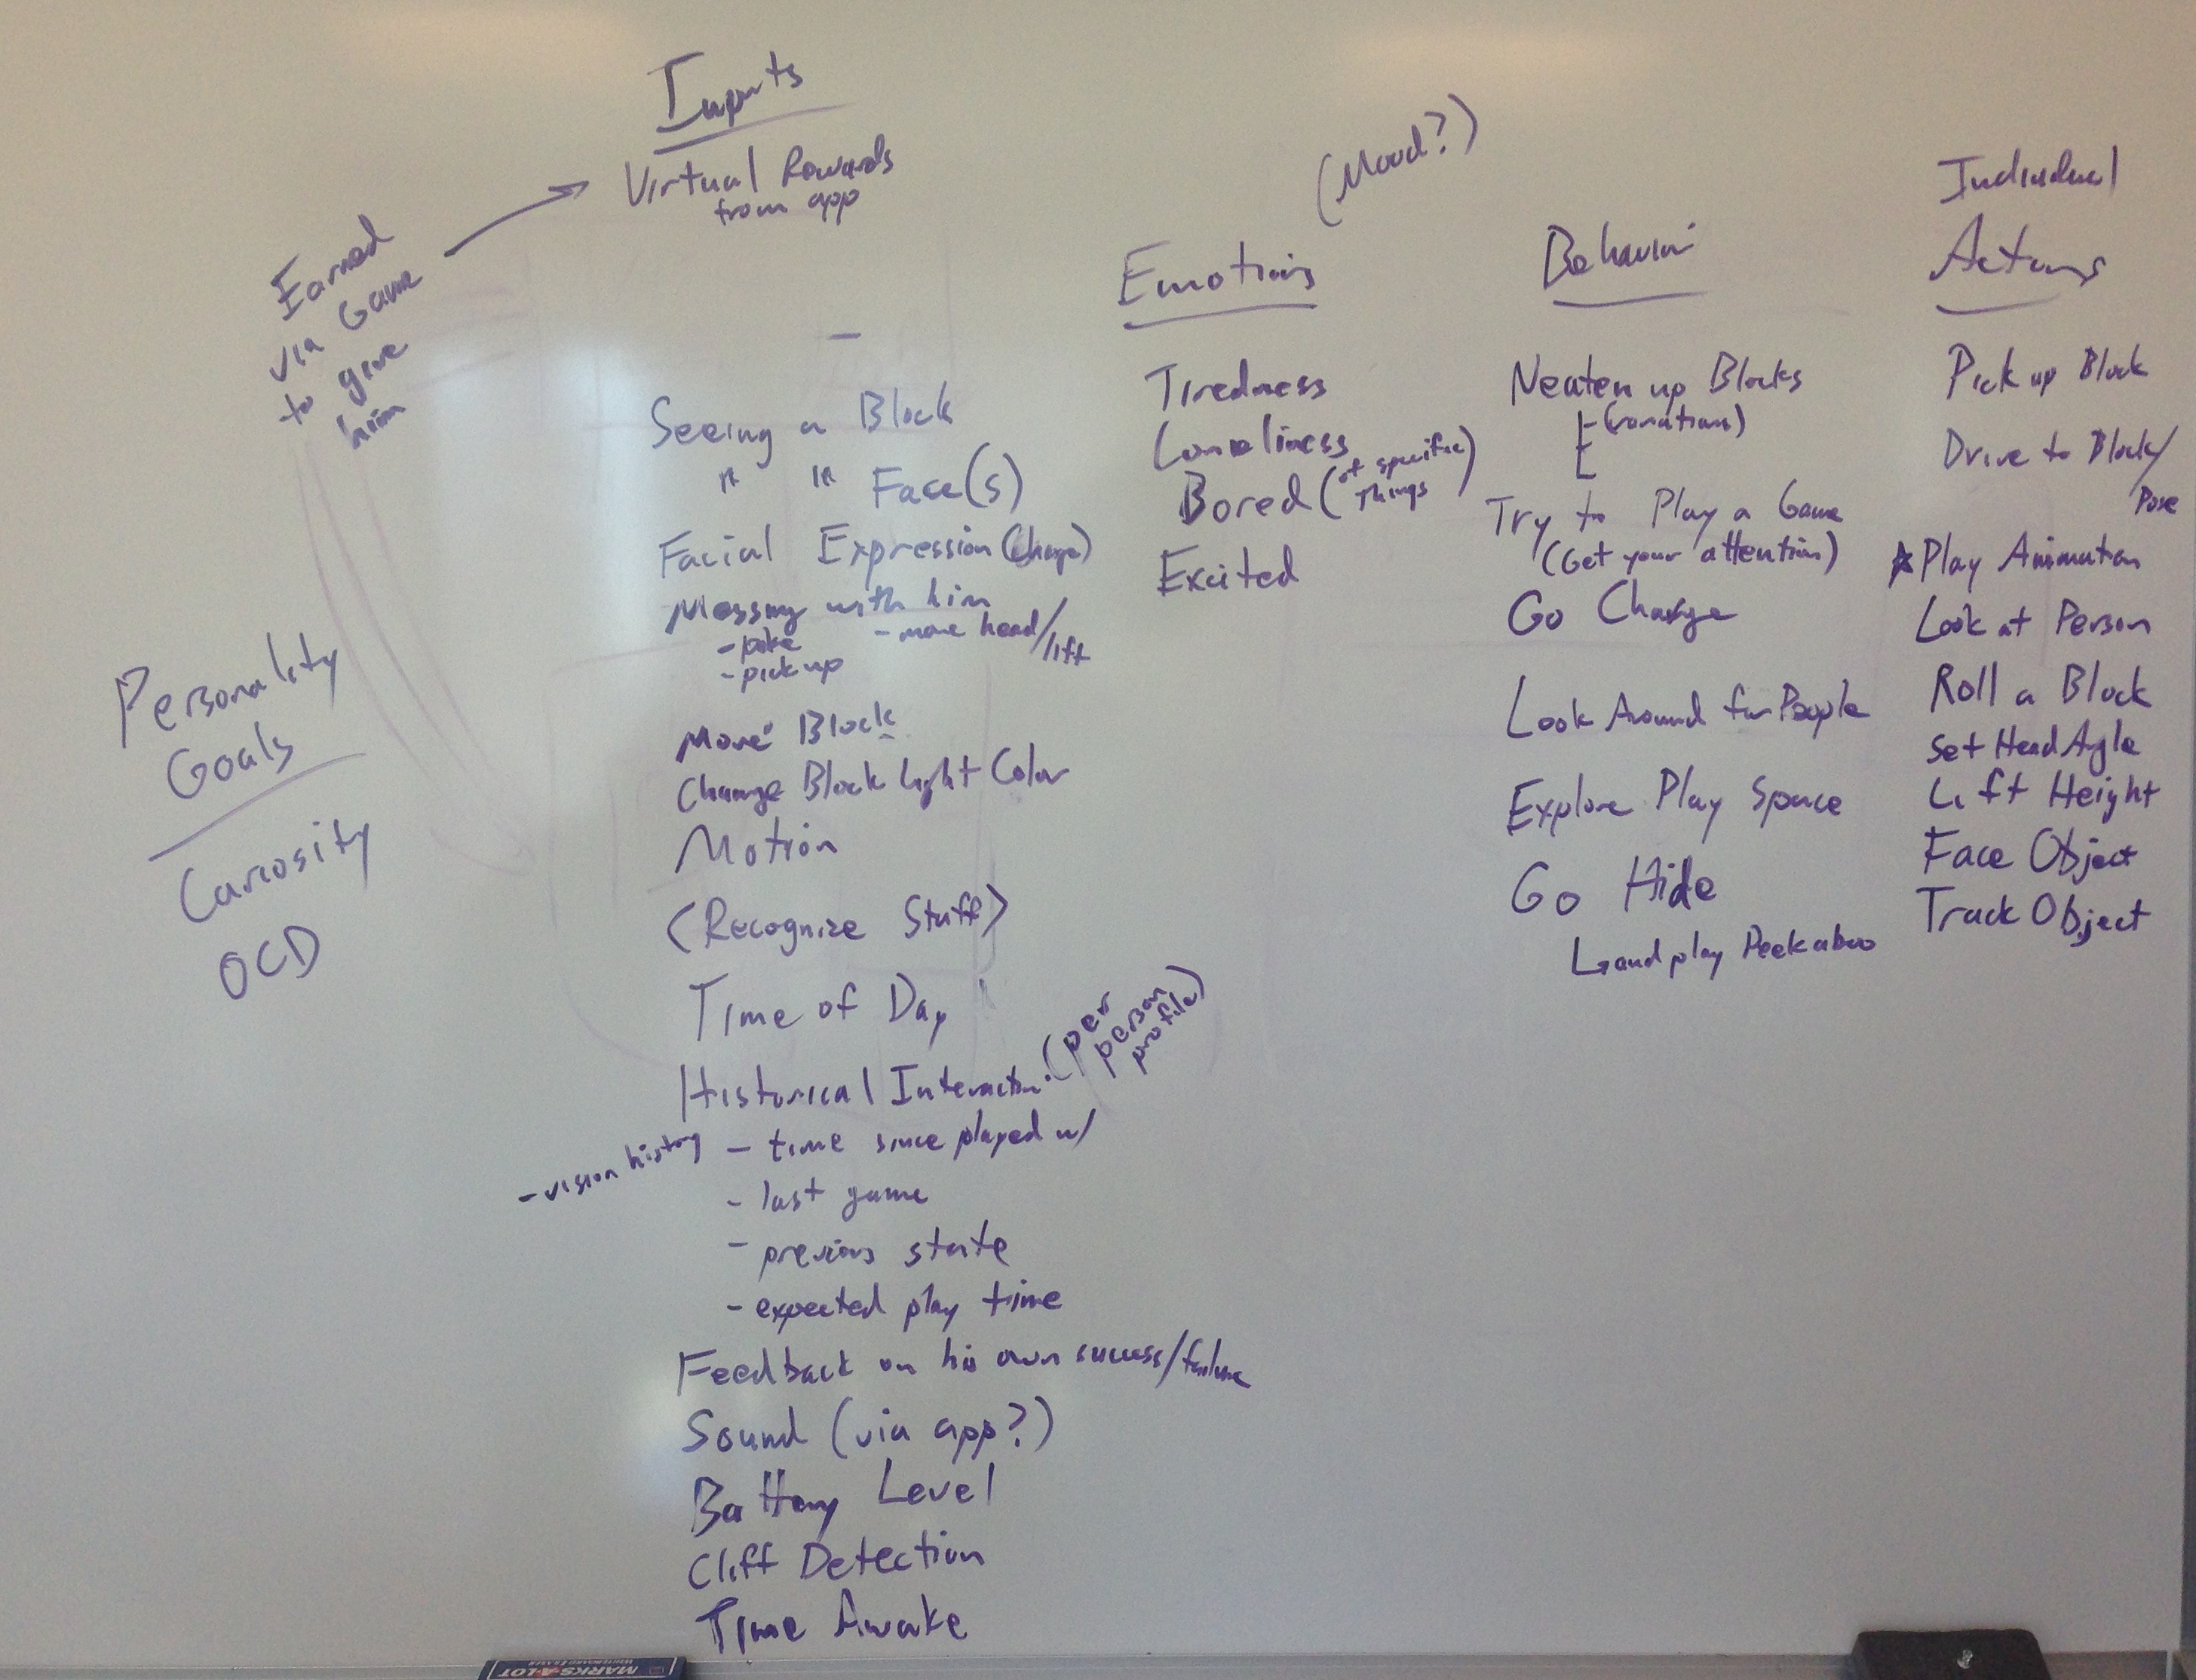 Inputs
Virtual Rewards
from app
Earned
via Game
to give
him
Personality
Goals
Curiosity
OCD
Seeing a Block
" " Face(s)
Facial Expression (change)
Messing with him
- poke
- move head/lift
- pick up
Move Block
Change Block Light Color
Motion
(Recognize Stuff)
Time of Day
Historical Interaction (per
person
profile)
- vision history
- time since played w/
- last game
- previous state
- expected play time
Feedback on his own success/failure
Sound (via app?)
Battery Level
Cliff Detection
Time Awake
(Mood?)
Emotions
Tiredness
Loneliness
Bored (of specific
things)
Excited
Behavior
Neaten up Blocks
(variations)
Try to Play a Game
(Get your attention)
Go Charge
Look Around for People
Explore Play Space
Go Hide
and play Peekaboo
Individual
Actions
Pick up Block
Drive to Block/
Pose
☆ Play Animation
Look at Person
Roll a Block
Set Head Angle
Lift Height
Face Object
Track Object
MARKS-A-LOT